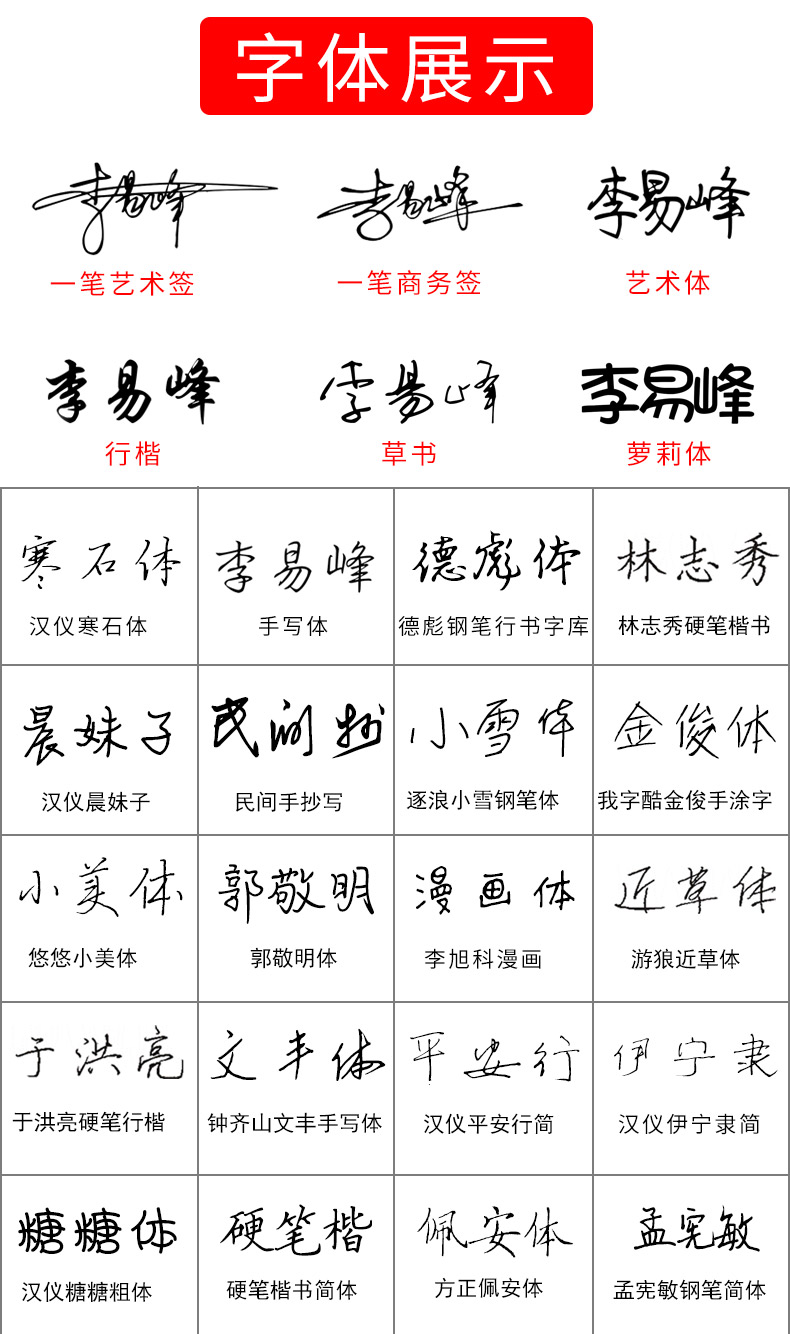 字体展示
李易峰 李易峰 李易峰
一笔艺术签 一笔商务签 艺术体
李易峰 李易峰 李易峰
行楷 草书 萝莉体
寒石体 李易峰 德彪体 林志秀
汉仪寒石体 手写体 德彪钢笔行书字库 林志秀硬笔楷书
晨妹子 民间抄 小雪体 金俊体
汉仪晨妹子 民间手抄写 逐浪小雪钢笔体 我字酷金俊手涂字
小美体 郭敬明 漫画体 近草体
悠悠小美体 郭敬明体 李旭科漫画 游狼近草体
于洪亮 文丰体 平安行 伊宁隶
于洪亮硬笔行楷 钟齐山文丰手写体 汉仪平安行简 汉仪伊宁隶简
糖糖体 硬笔楷 佩安体 孟宪敏
汉仪糖糖粗体 硬笔楷书简体 方正佩安体 孟宪敏钢笔简体